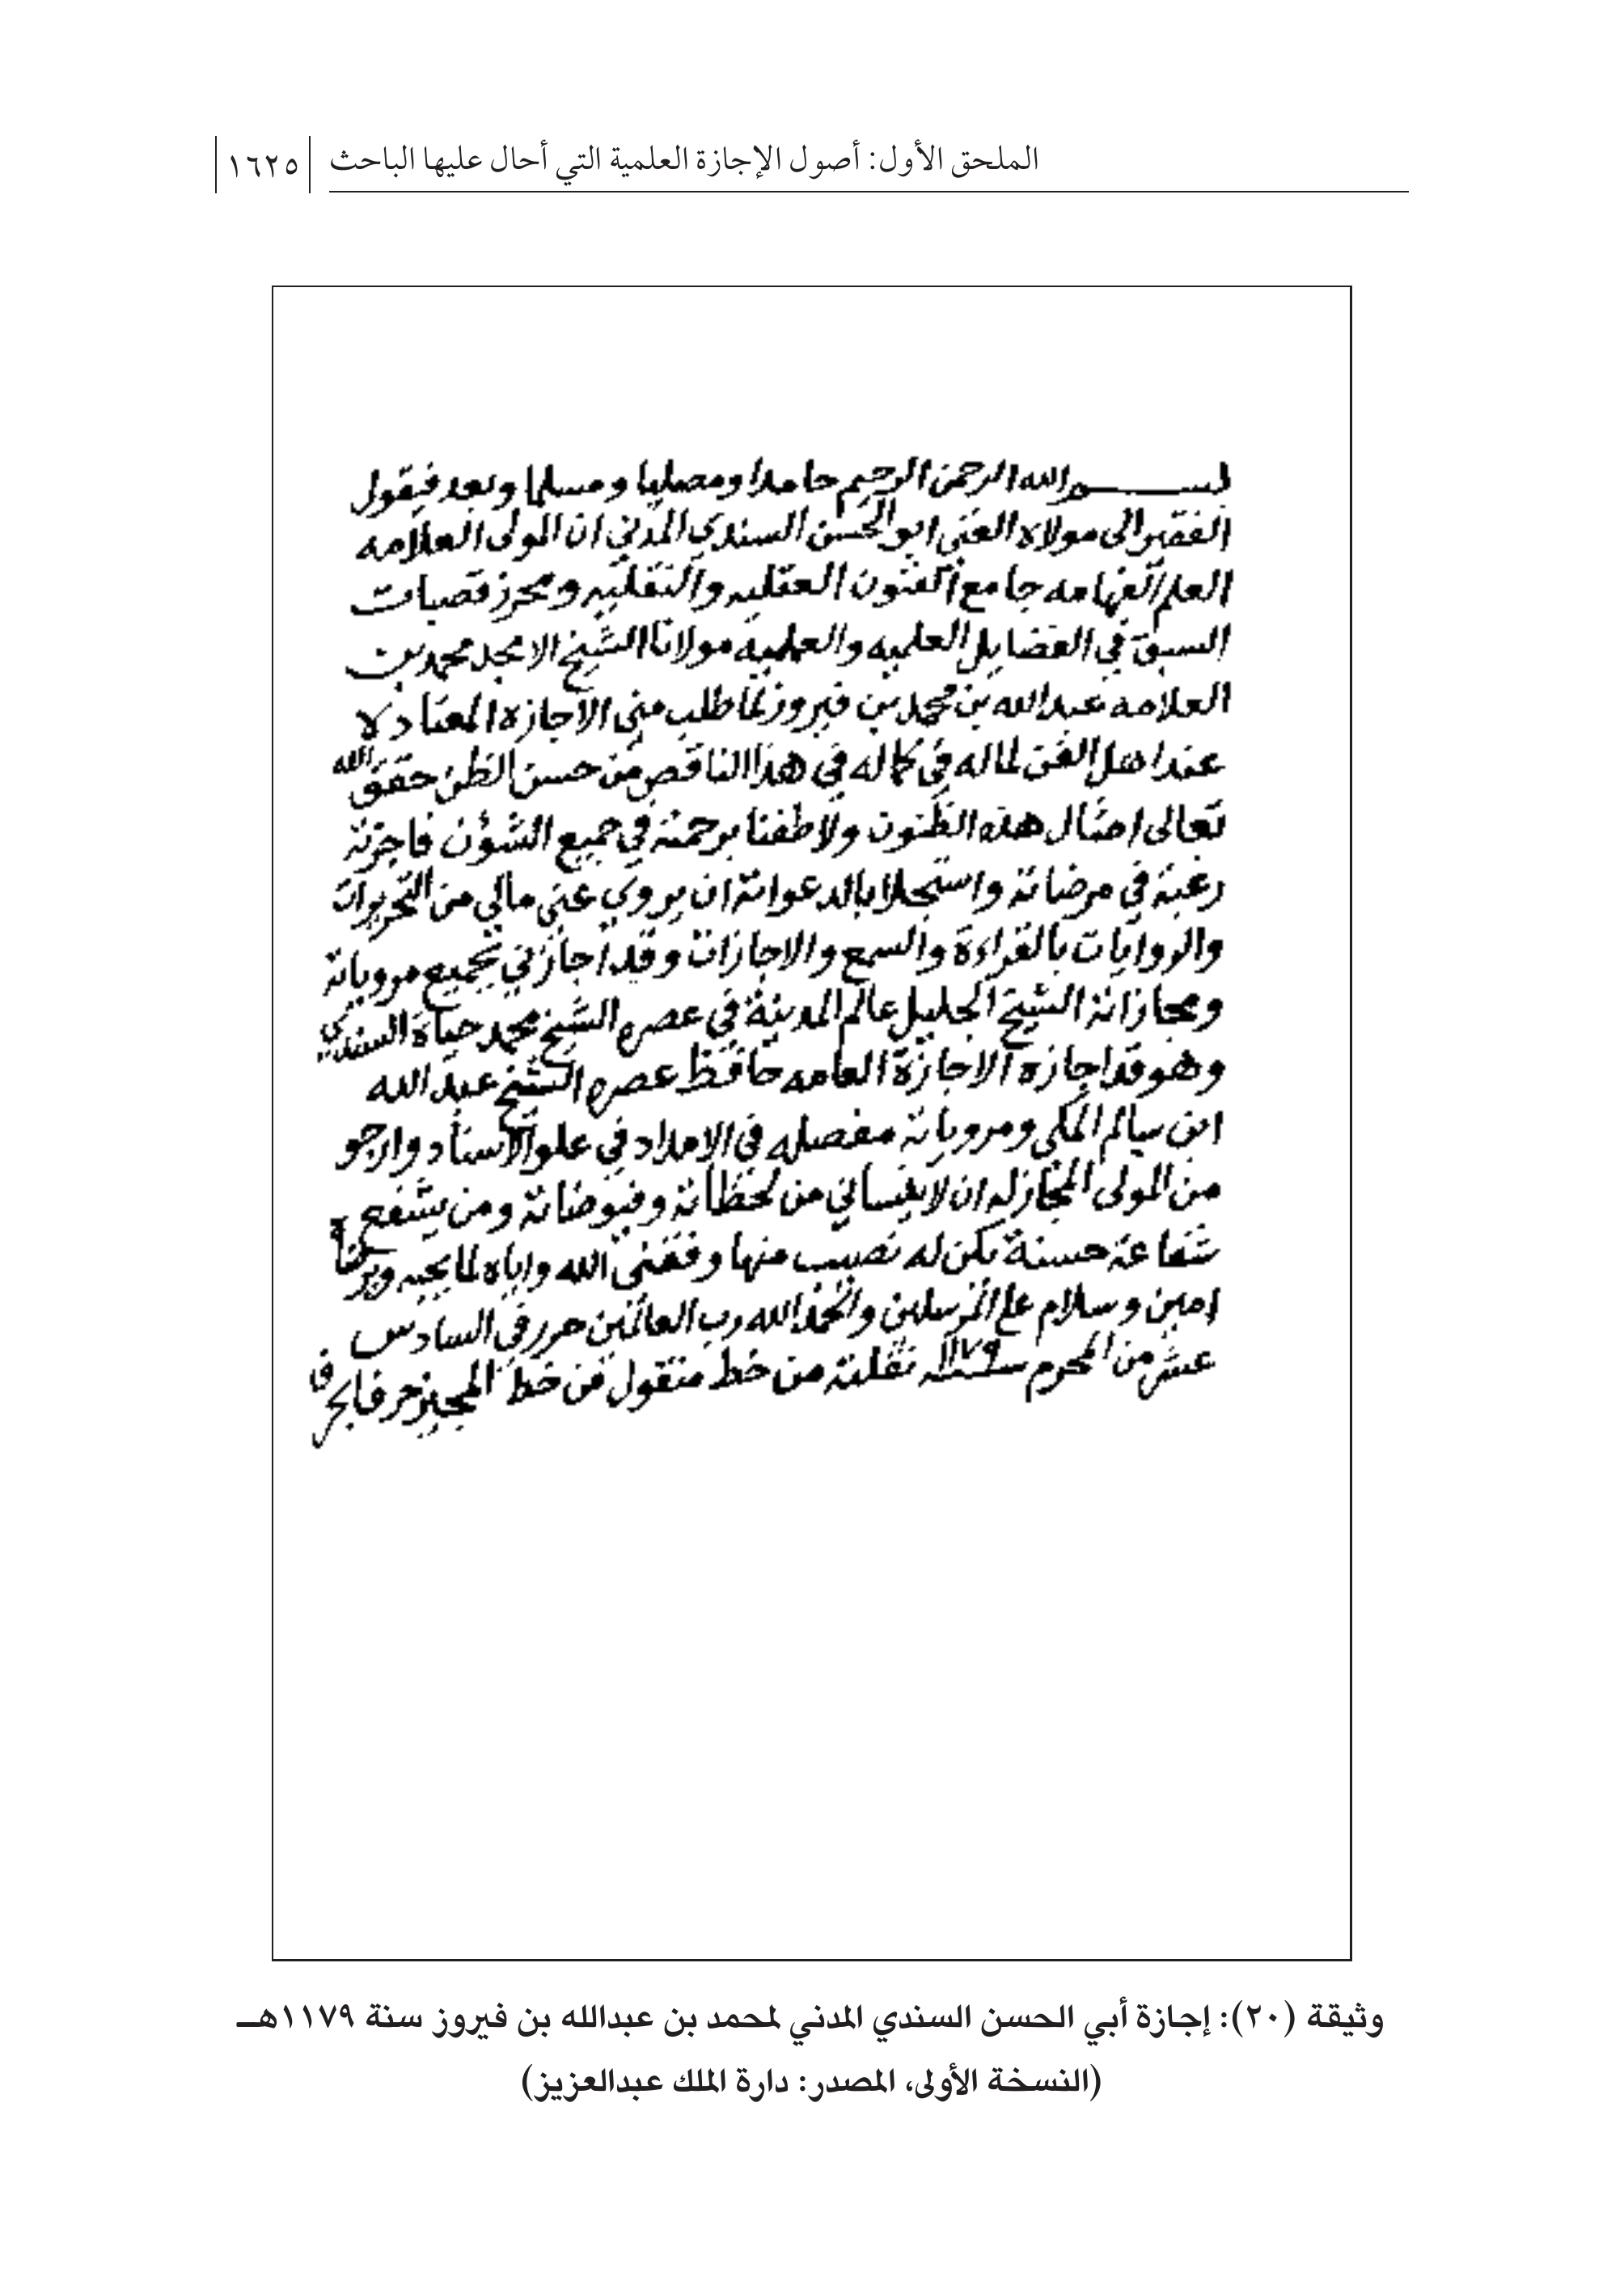 الملحق الأول: أصول الإجازة العلمية التي أحال عليها الباحث ١٦٢٥
بسم الله الرحمن الرحيم حامدا ومصليا ومسلما وبعد فيقول
الفقير الى مولاه الغني ابو الحسن السندي المدني ان المولى العلامه
العلم الفهامه جامع الفنون العقليه والنقليه ومحرز قصبات
السبق في الفضايل العلميه والعملية مولانا الشيخ الامجد محمد بن
العلامه عبدالله بن محمد بن فيروز لما طلب مني الاجازه المعتاده
عند اهل الفن لماله في كماله في هذا الناقص من حسن الظن حقق الله
تعالى امثال هذه الظنون ولاطفنا برحمته في جميع الشؤن فاجزته
رغبة في مرضاته واستجلابا لدعواته ان يروي عني مالي من التحريرات
والروايات بالقراءة والسمع والاجازات وقد اجازني بجميع مروياته
ومجازاته الشيخ الجليل عالم المدينة في عصره الشيخ محمد حياة السندي
وهو قد اجازه الاجازة العامه حافظ عصره الشيخ عبد الله
ابن سالم المكي ومروياته مفصله في الامداد في علو الاسناد وارجو
من المولى المجاز له ان لا ينساني من لحظاته وفيوضاته ومن يشفع
شفاعة حسنة يكن له نصيب منها وفقني الله واياه لما يحبه ويرضاه
امين وسلام على المرسلين والحمد لله رب العالمين حرر في السادس
عشر من المحرم سنة ١١٧٩ نقلته من خط منقول من خط المجيز
وثيقة (٢٠): إجازة أبي الحسن السندي المدني لمحمد بن عبدالله بن فيروز سنة ١١٧٩هـ
(النسخة الأولى، المصدر: دارة الملك عبدالعزيز)